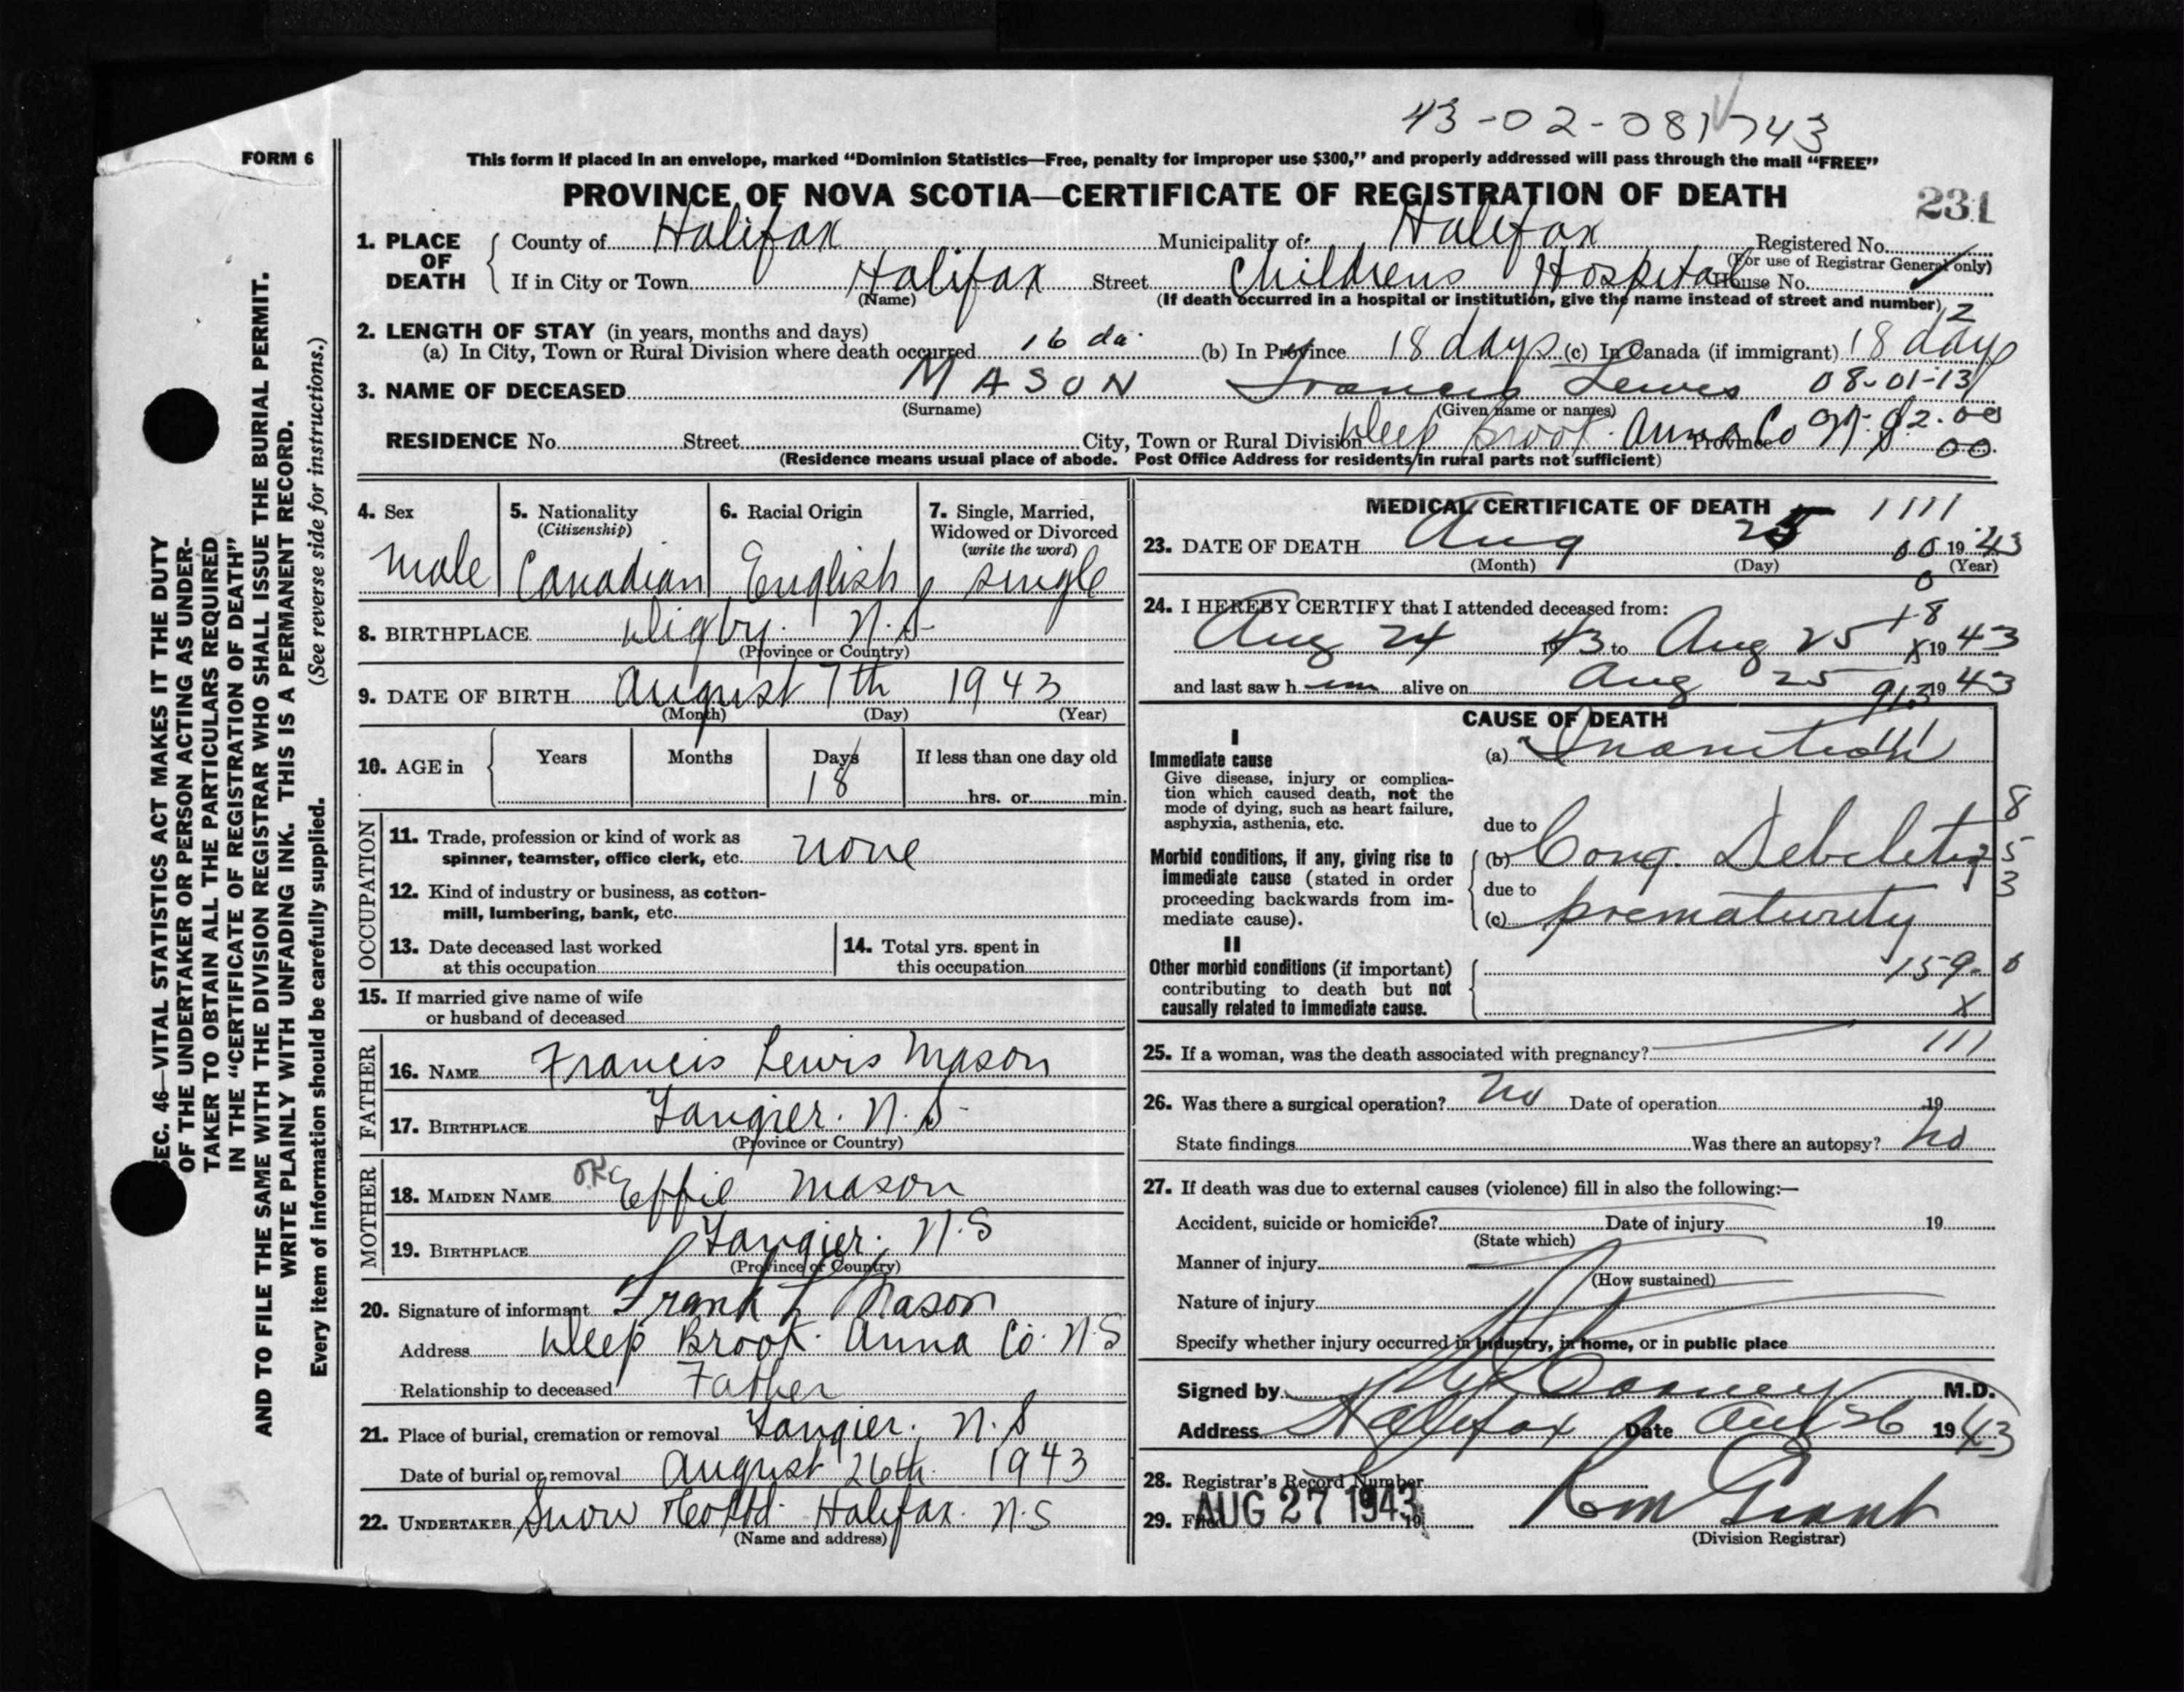 43-02-081743
FORM 6
This form if placed in an envelope, marked “Dominion Statistics—Free, penalty for improper use $300,” and properly addressed will pass through the mail “FREE”
PROVINCE OF NOVA SCOTIA—CERTIFICATE OF REGISTRATION OF DEATH
231
1. PLACE OF DEATH
County of Halifax Municipality of Halifax Registered No.
(For use of Registrar General only)
If in City or Town Halifax Street Childrens Hospital House No.
(Name) (If death occurred in a hospital or institution, give the name instead of street and number)
2. LENGTH OF STAY (in years, months and days) 12
(a) In City, Town or Rural Division where death occurred 16 da. (b) In Province 18 days (c) In Canada (if immigrant) 18 days
3. NAME OF DECEASED MASON Francis Lewis 08-01-13
(Surname) (Given name or names)
RESIDENCE No. Street City, Town or Rural Division Deep Brook. Anna Co Province N.S. 02.00
00
(Residence means usual place of abode. Post Office Address for residents in rural parts not sufficient)
4. Sex
male
5. Nationality
(Citizenship)
Canadian
6. Racial Origin
English
7. Single, Married,
Widowed or Divorced
(write the word)
single
8. BIRTHPLACE Digby. N.S.
(Province or Country)
9. DATE OF BIRTH August 7th 1943
(Month) (Day) (Year)
10. AGE in Years Months Days If less than one day old
18 hrs. or min.
OCCUPATION
11. Trade, profession or kind of work as
spinner, teamster, office clerk, etc. none
12. Kind of industry or business, as cotton-
mill, lumbering, bank, etc.
13. Date deceased last worked
at this occupation
14. Total yrs. spent in
this occupation
15. If married give name of wife
or husband of deceased
FATHER
16. NAME Francis Lewis Mason
17. BIRTHPLACE Tangier. N.S.
(Province or Country)
MOTHER
18. MAIDEN NAME OK Effie Mason
19. BIRTHPLACE Tangier. N.S
(Province or Country)
20. Signature of informant Frank L Mason
Address Deep Brook. Anna Co. N.S
Relationship to deceased Father
21. Place of burial, cremation or removal Tangier. N.S
Date of burial or removal August 26th. 1943
22. UNDERTAKER Snow & Co Ltd. Halifax. N.S
(Name and address)
MEDICAL CERTIFICATE OF DEATH 1111
23. DATE OF DEATH Aug 25 00 1943
(Month) (Day) (Year)
0
24. I HEREBY CERTIFY that I attended deceased from:
18
Aug 24 1943 to Aug 25 X 1943
and last saw him alive on Aug 25 1943
913
CAUSE OF DEATH
I
Immediate cause
Give disease, injury or complica-
tion which caused death, not the
mode of dying, such as heart failure,
asphyxia, asthenia, etc.
(a) Inanition
111
due to
8
Morbid conditions, if any, giving rise to
immediate cause (stated in order
proceeding backwards from im-
mediate cause).
(b) Cong. Debility
5
due to
3
(c) prematurity
II
Other morbid conditions (if important)
contributing to death but not
causally related to immediate cause.
159. 0
X
25. If a woman, was the death associated with pregnancy? 111
26. Was there a surgical operation? No Date of operation 19
State findings Was there an autopsy? No
27. If death was due to external causes (violence) fill in also the following:—
Accident, suicide or homicide? Date of injury 19
(State which)
Manner of injury
(How sustained)
Nature of injury
Specify whether injury occurred in industry, in home, or in public place
Signed by M.D.
Address Halifax Date Aug 26 1943
28. Registrar's Record Number
29. AUG 27 1943 19
Grant
(Division Registrar)
SEC. 46—VITAL STATISTICS ACT MAKES IT THE DUTY
OF THE UNDERTAKER OR PERSON ACTING AS UNDER-
TAKER TO OBTAIN ALL THE PARTICULARS REQUIRED
IN THE “CERTIFICATE OF REGISTRATION OF DEATH”
AND TO FILE THE SAME WITH THE DIVISION REGISTRAR WHO SHALL ISSUE THE BURIAL PERMIT.
WRITE PLAINLY WITH UNFADING INK. THIS IS A PERMANENT RECORD.
Every item of information should be carefully supplied. (See reverse side for instructions.)